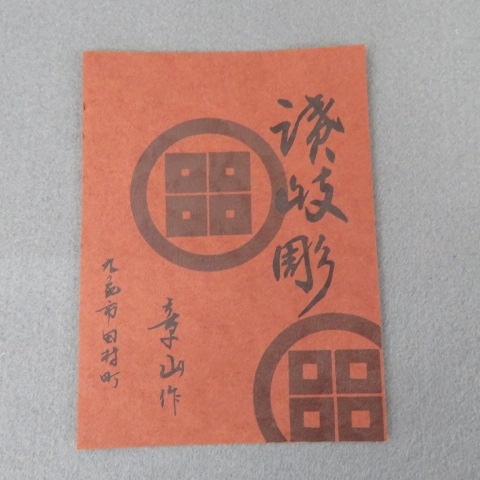 讃岐彫
章山作
丸亀市田村町